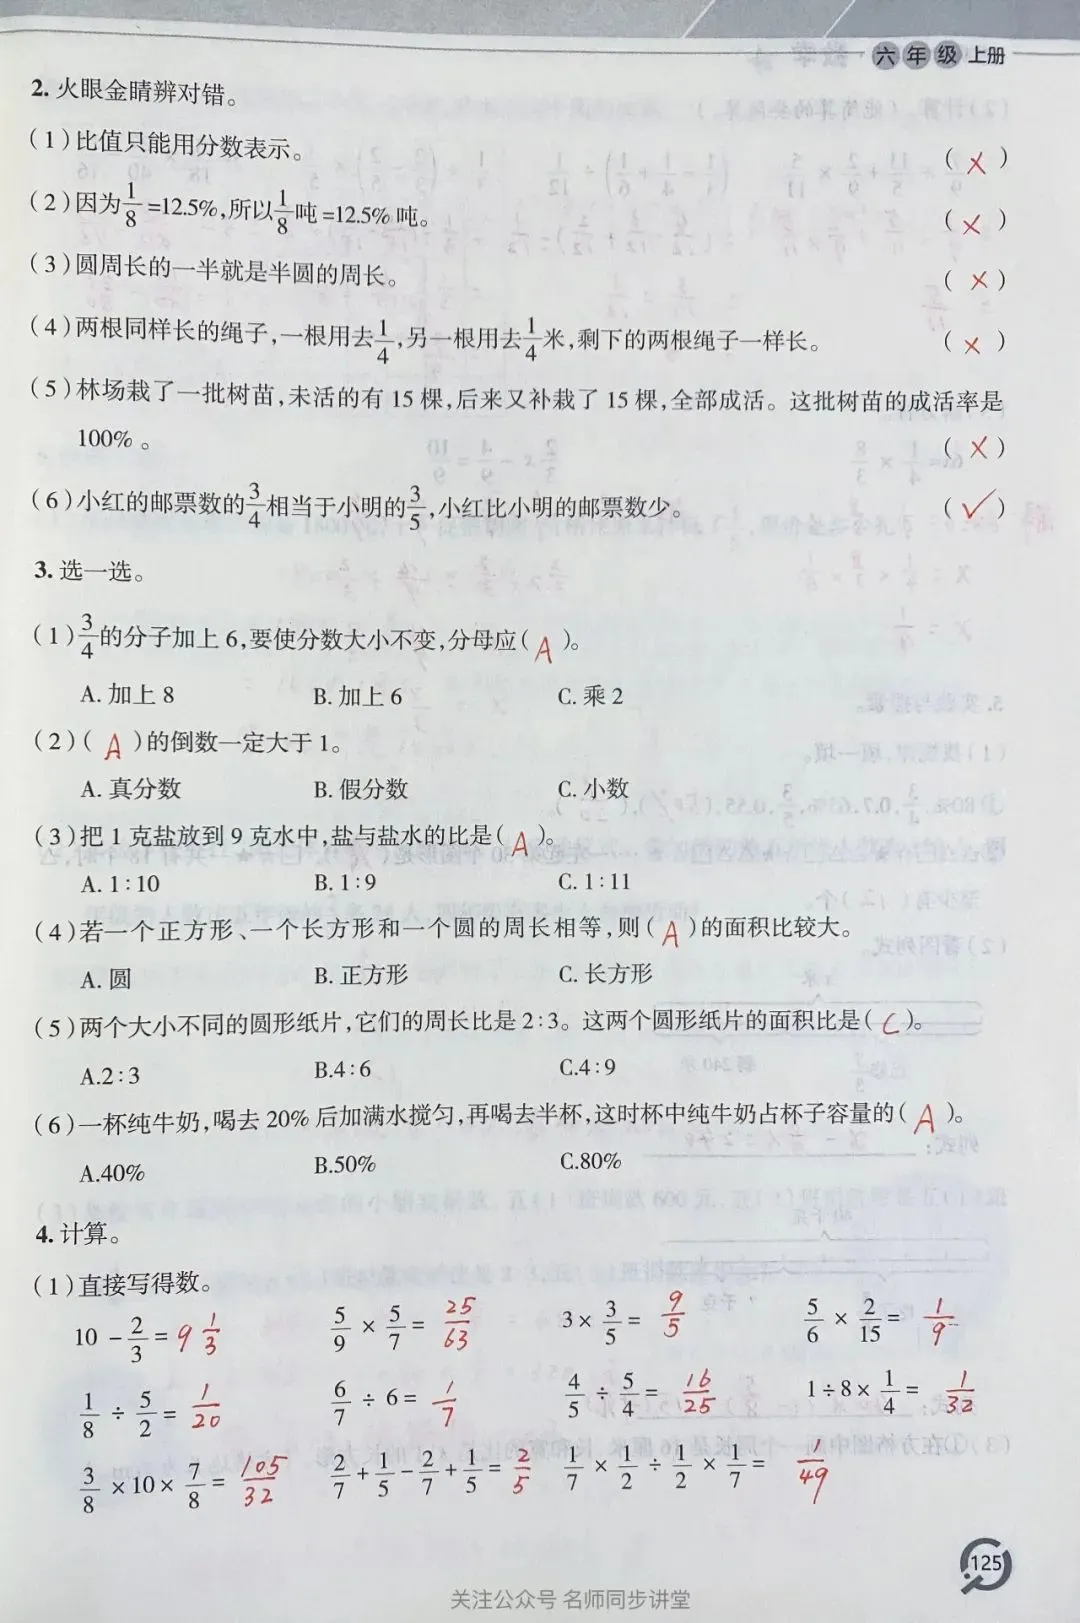 数学·六年级 上册
2. 火眼金睛辨对错。
(1)比值只能用分数表示。 (×)
(2)因为1/8=12.5%,所以1/8吨=12.5%吨。 (×)
(3)圆周长的一半就是半圆的周长。 (×)
(4)两根同样长的绳子,一根用去1/4,另一根用去1/4米,剩下的两根绳子一样长。 (×)
(5)林场栽了一批树苗,未活的有15棵,后来又补栽了15棵,全部成活。这批树苗的成活率是
100%。 (×)
(6)小红的邮票数的3/4相当于小明的3/5,小红比小明的邮票数少。 (✓)
3. 选一选。
(1)3/4的分子加上6,要使分数大小不变,分母应(A)。
A. 加上8 B. 加上6 C. 乘2
(2)(A)的倒数一定大于1。
A. 真分数 B. 假分数 C. 小数
(3)把1克盐放到9克水中,盐与盐水的比是(A)。
A. 1∶10 B. 1∶9 C. 1∶11
(4)若一个正方形、一个长方形和一个圆的周长相等,则(A)的面积比较大。
A. 圆 B. 正方形 C. 长方形
(5)两个大小不同的圆形纸片,它们的周长比是2∶3。这两个圆形纸片的面积比是(C)。
A.2∶3 B.4∶6 C.4∶9
(6)一杯纯牛奶,喝去20%后加满水搅匀,再喝去半杯,这时杯中纯牛奶占杯子容量的(A)。
A.40% B.50% C.80%
4. 计算。
(1)直接写得数。
10-2/3=9 1/3 5/9×5/7=25/63 3×3/5=9/5 5/6×2/15=1/9
1/8÷5/2=1/20 6/7÷6=1/7 4/5÷5/4=16/25 1÷8×1/4=1/32
3/8×10×7/8=105/32 2/7+1/5-2/7+1/5=2/5 1/7×1/2÷1/2×1/7=1/49
125
关注公众号 名师同步讲堂